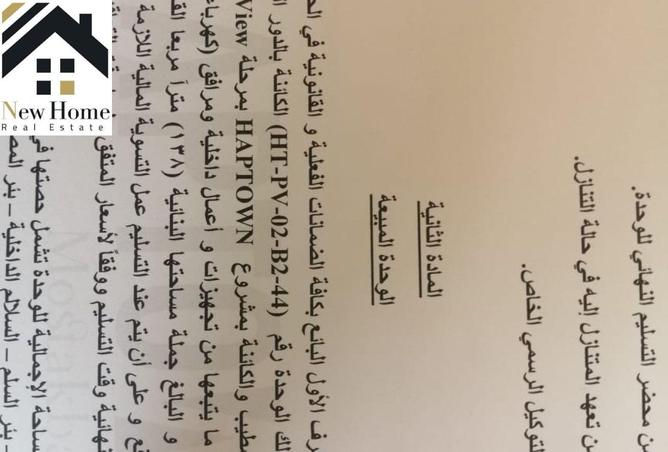 New Home
Real Estate
من محضر التسليم النهائي للوحدة.
من تعهد المتنازل إليه في حالة التنازل.
التوكيل الرسمي الخاص.
المادة الثانية
الوحدة المبيعة
الأول البائع بكافة الضمانات الفعلية و القانونية في
الوحدة رقم (HT-PV-02-B2-44) الكائنة بالدور
والكائنة بمشروع HAPTOWN بمرحلة View
ما يتبعها من تجهيزات و أعمال داخلية ومرافق (كهرباء
و البالغ جملة مساحتها البنائية (١٣٨) متراً مربعا
و على أن يتم عند التسليم عمل التسوية المالية اللازمة
وقت التسليم ووفقاً لأسعار المتفق
الاجمالية للوحدة تشمل حصتها في
بئر السلم – السلالم الداخلية – بئر